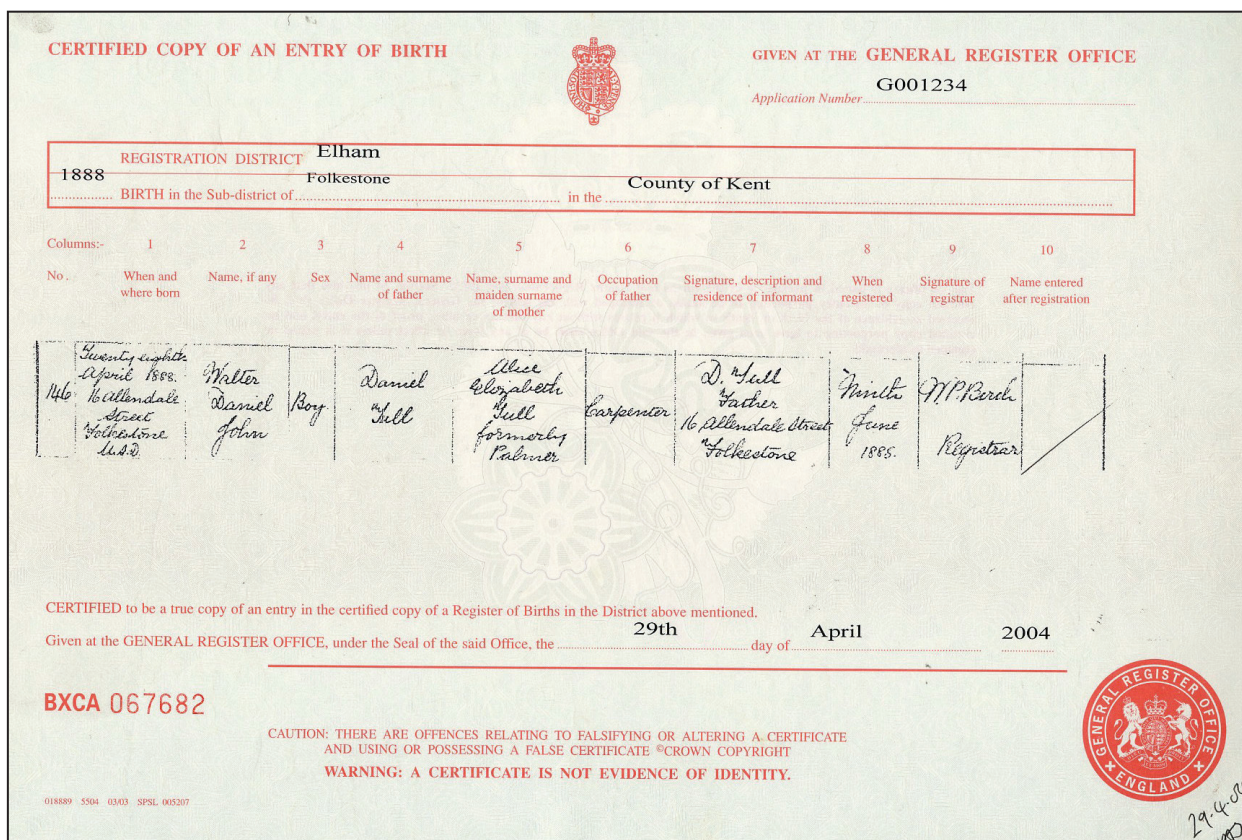 CERTIFIED COPY OF AN ENTRY OF BIRTH
GIVEN AT THE GENERAL REGISTER OFFICE
Application Number G001234
REGISTRATION DISTRICT Elham
1888 BIRTH in the Sub-district of Folkestone in the County of Kent
Columns:- 1 2 3 4 5 6 7 8 9 10
No. When and where born Name, if any Sex Name and surname of father Name, surname and maiden surname of mother Occupation of father Signature, description and residence of informant When registered Signature of registrar Name entered after registration
146
Twenty eighth
April 1888.
16 Allendale
Street
Folkestone
U.S.D.
Walter
Daniel
John
Boy
Daniel
Tull
Alice
Elizabeth
Tull
formerly
Palmer
Carpenter
D. Tull
Father
16 Allendale Street
Folkestone
Ninth
June
1888.
W.P. Birch
Registrar
CERTIFIED to be a true copy of an entry in the certified copy of a Register of Births in the District above mentioned.
Given at the GENERAL REGISTER OFFICE, under the Seal of the said Office, the 29th day of April 2004
BXCA 067682
CAUTION: THERE ARE OFFENCES RELATING TO FALSIFYING OR ALTERING A CERTIFICATE
AND USING OR POSSESSING A FALSE CERTIFICATE ©CROWN COPYRIGHT
WARNING: A CERTIFICATE IS NOT EVIDENCE OF IDENTITY.
GENERAL REGISTER OFFICE
ENGLAND
018889 5504 03/03 SPSL 005207
29.4.04